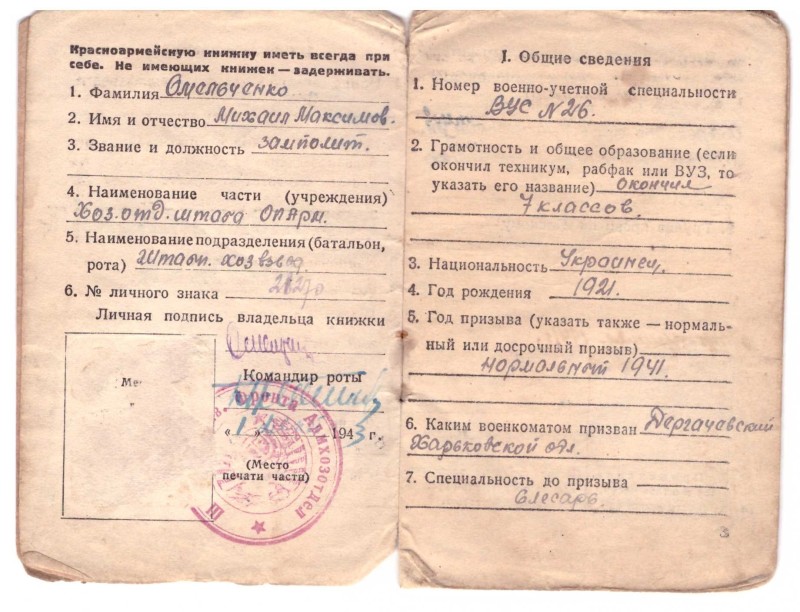 Красноармейскую книжку иметь всегда при
себе. Не имеющих книжек — задерживать.
1. Фамилия Омельченко
2. Имя и отчество Михаил Максимов.
3. Звание и должность замполит.
4. Наименование части (учреждения)
Хоз. отд. штаба
5. Наименование подразделения (батальон,
рота) Штабн. хозвзвод
6. № личного знака
Личная подпись владельца книжки
Командир роты
Ме
фронта Админхозотдел
„ “ 1943 г.
(Место
печати части)
I. Общие сведения
1. Номер военно-учетной специальности
ВУС №26.
2. Грамотность и общее образование (если
окончил техникум, рабфак или ВУЗ, то
указать его название) окончил
7 классов.
3. Национальность Украинец.
4. Год рождения 1921.
5. Год призыва (указать также — нормаль-
ный или досрочный призыв)
нормальный 1941.
6. Каким военкоматом призван Дергачевский
Харьковской обл.
7. Специальность до призыва
слесарь.
3